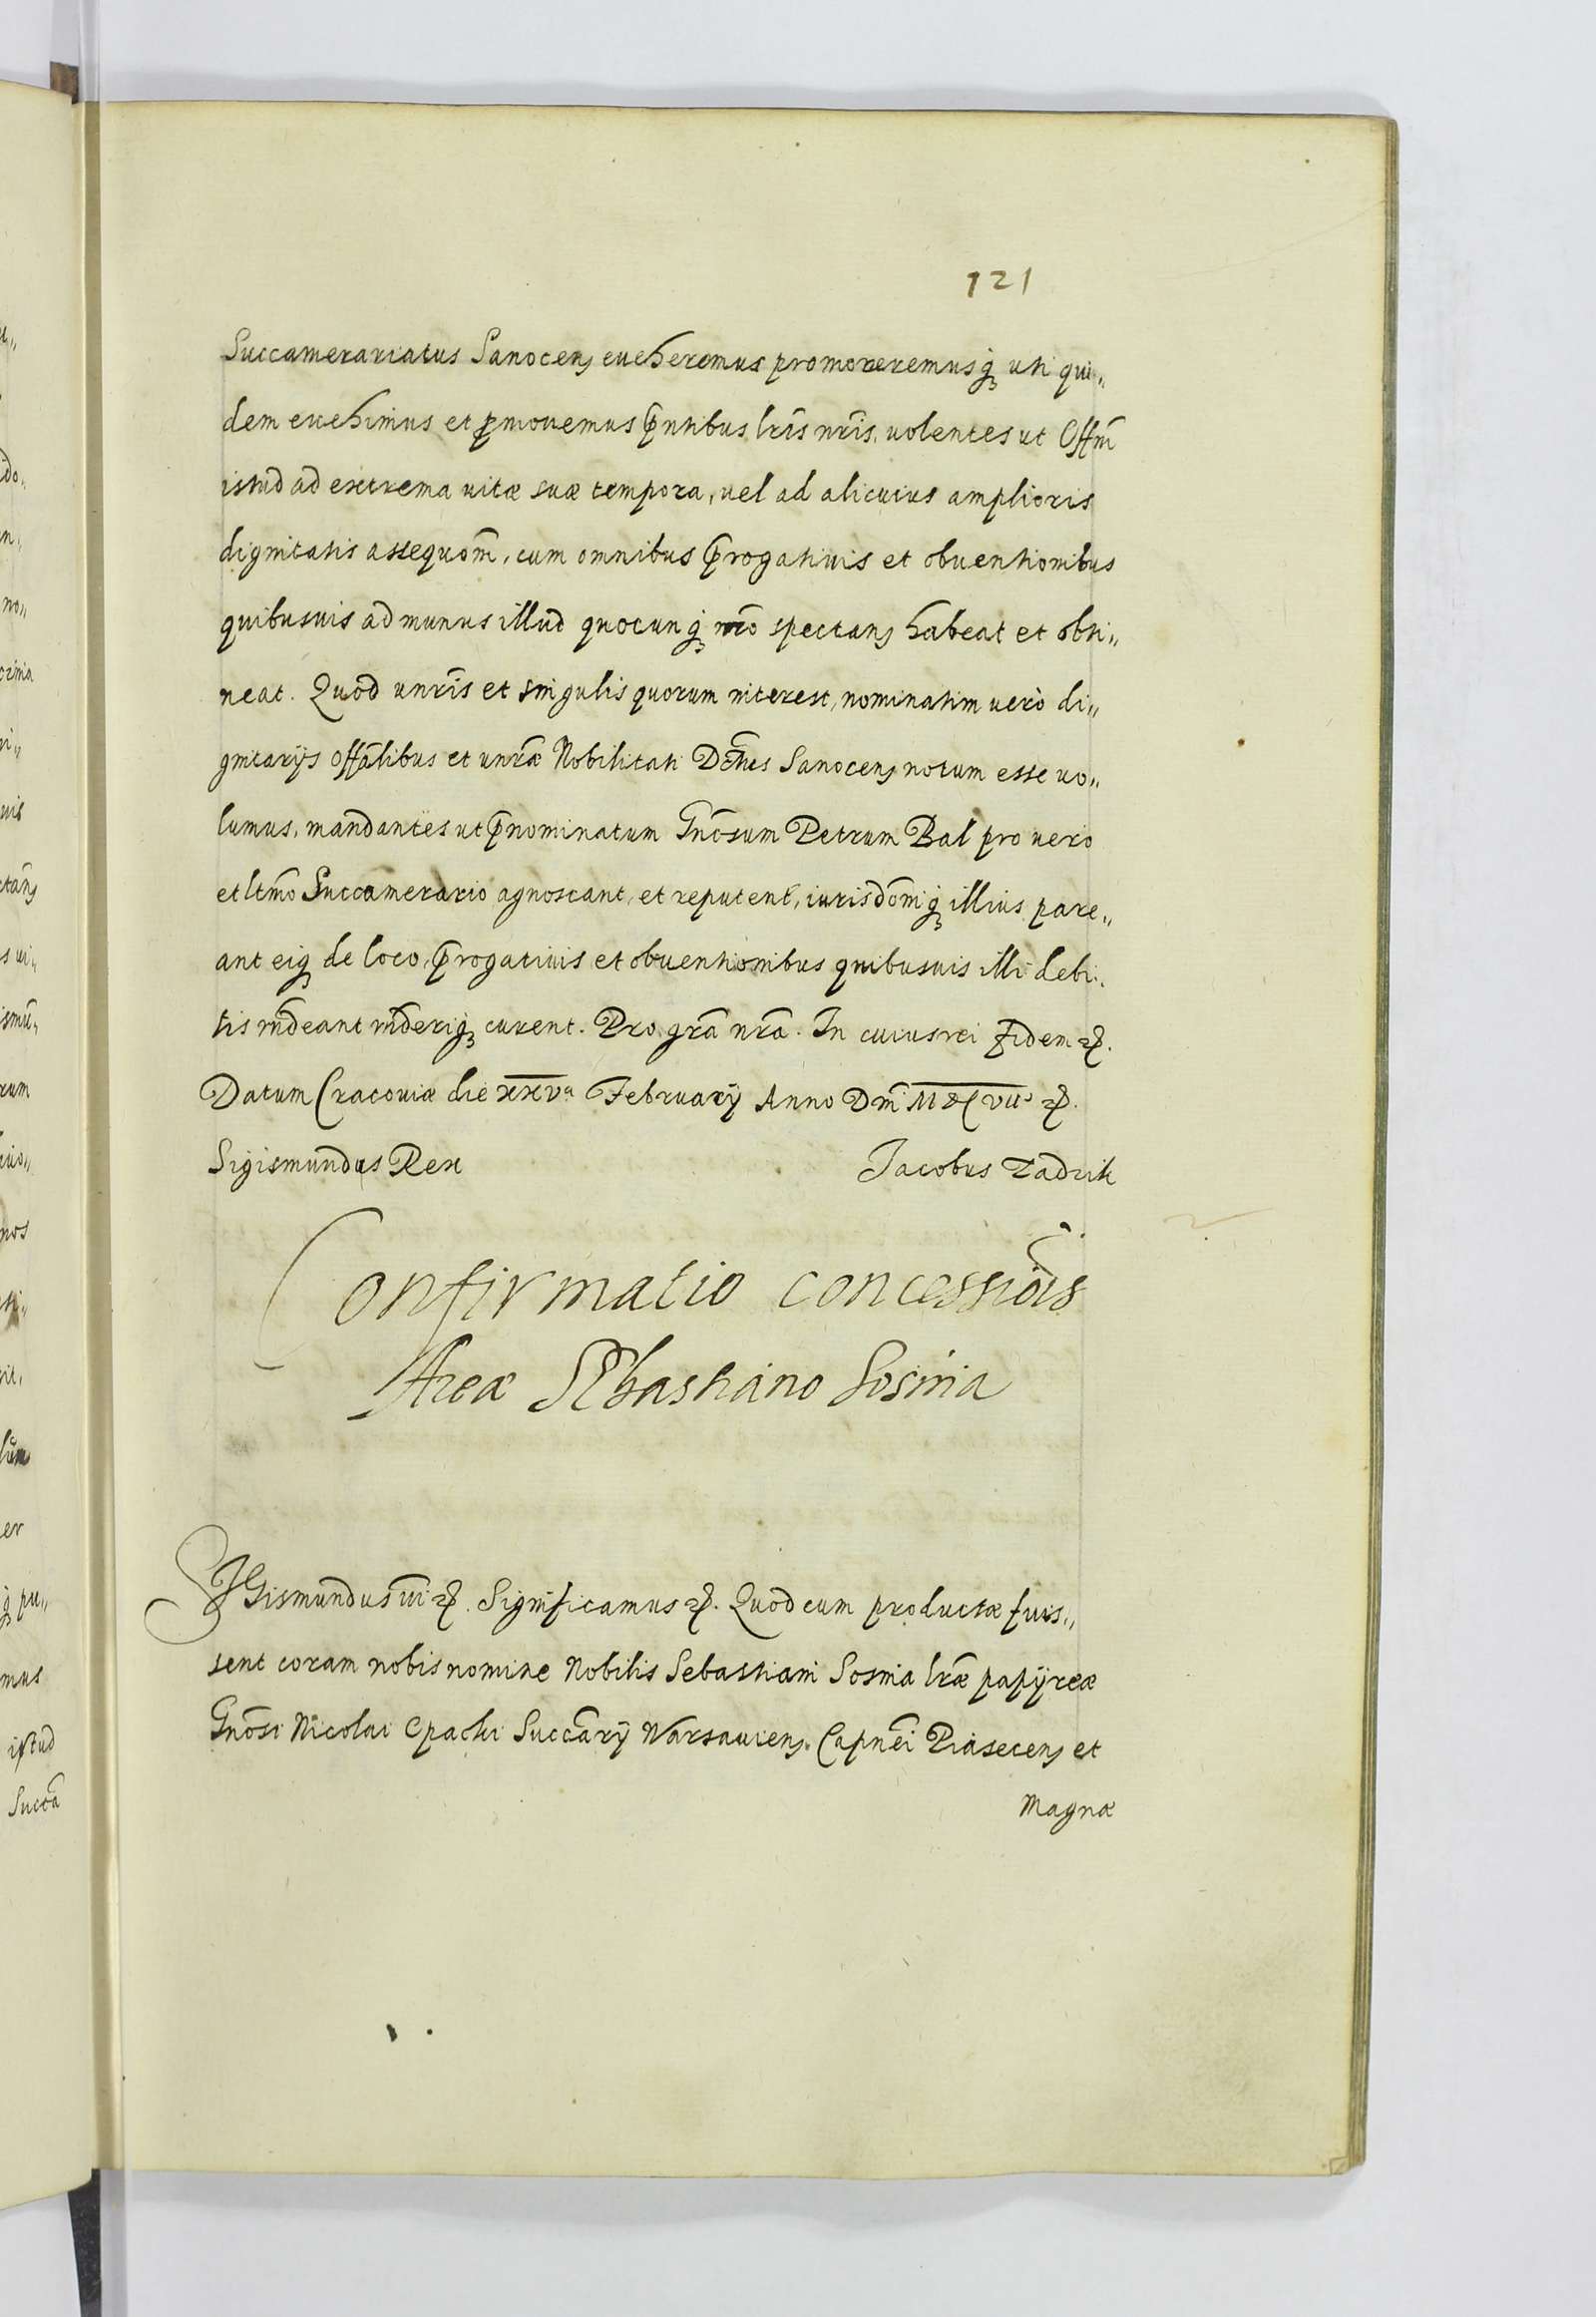 121
Succamerariatus Sanocens eueheremus promoueremusq uti qui„
dem euehimus et pmouemus pntibus lris nris, uolentes ut Offm
istud ad extrema uitæ suæ tempora, uel ad alicuius amplioris
dignitatis assequom, cum omnibus progatiuis et obuentionibus
quibusuis ad munus illud quocunq mo spectans habeat et obti„
neat. Quod unris et singulis quorum interest, nominatim uerò di„
gnitarijs offalibus et unræ Nobilitati Sanocens notum esse uo„
lumus, mandantes ut pnominatum Gnosum Petrum Bal pro uero
et ltmo Succamerario agnoscant, et reputent, iurisdomiq illius pare„
ant eiq de loco, progatiuis et obuentionibus quibusuis illi debi„
tis rndeant rnderiq curent. Pro gra nra. In cuius rei fidem &.
Datum Cracouiæ die xxva February Anno Dni MDCVIIo &.
Sigismundus Rex Jacobus Zadzik
Confirmatio concessiois
Areæ Sebastiano Sosnia
SIGismundus III &. Significamus &. Quod cum productæ fuis„
sent coram nobis nomine Nobilis Sebastiani Sosnia lræ papijreæ
Gnosi Nicolai Opacki Succary Warsauiens. Capnei Piasecens et
Magnæ
ido„
no„
rum
nos
er
mus
istud
Succa